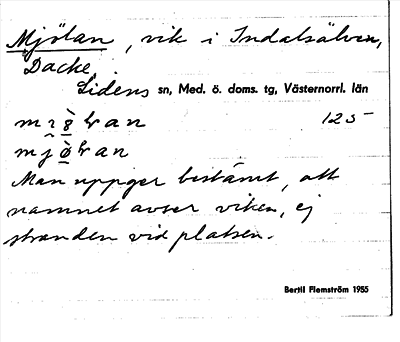 Mjölan, vik i Indalsälven,
Dacke,
Lidens sn, Med. ö. doms. tg, Västernorrl. län
125
Man uppger bestämt, att
namnet avser viken, ej
stranden vid platsen.
Bertil Flemström 1955